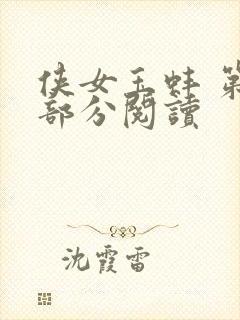 侠女玉蚌 第
部分阅讀
沈霞雷